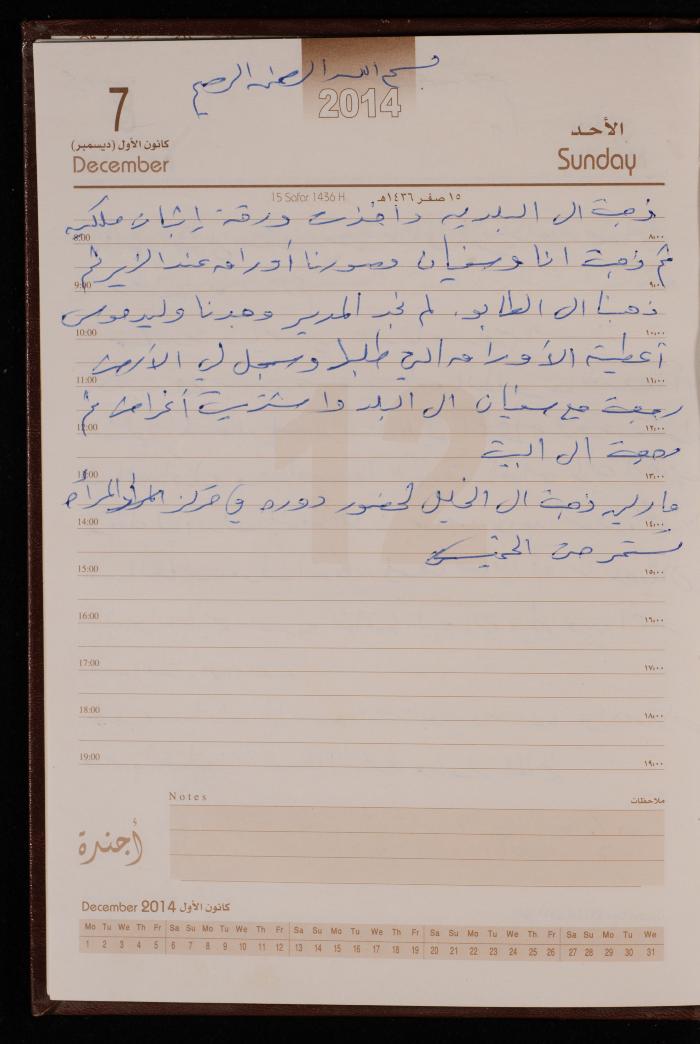 بسم الله الرحمن الرحيم
2014
7
كانون الأول (ديسمبر)
December
الأحد
Sunday
15 Safar 1436 H ١٥ صفر ١٤٣٦هـ
ذهبت ال البلديه وأخذت ورقة إثبات ملكيه
8:00 ٨:٠٠
ثم ذهبت انا وسفيان وصورنا أوراق عند الزير ثم
9:00 ٩:٠٠
ذهبنا ال الطابو. لم نجد المدير وجدنا وليد موسى
10:00 ١٠:٠٠
أعطيته الأوراق التي طلبها وسجل لي الأرض
11:00 ١١:٠٠
رجعت مع سفيان ال البلد واشتريت أغراض ثم
12:00 ١٢:٠٠
رجعت ال البيت
13:00 ١٣:٠٠
ذهبت ال الخليل لحضور دوره في مركز المرأه
14:00 ١٤:٠٠
تستمر حتى الخميس
15:00 ١٥:٠٠
16:00 ١٦:٠٠
17:00 ١٧:٠٠
18:00 ١٨:٠٠
19:00 ١٩:٠٠
12
Notes ملاحظات
أجندة
December 2014 كانون الأول
Mo Tu We Th Fr Sa Su Mo Tu We Th Fr Sa Su Mo Tu We Th Fr Sa Su Mo Tu We Th Fr Sa Su Mo Tu We
1 2 3 4 5 6 7 8 9 10 11 12 13 14 15 16 17 18 19 20 21 22 23 24 25 26 27 28 29 30 31